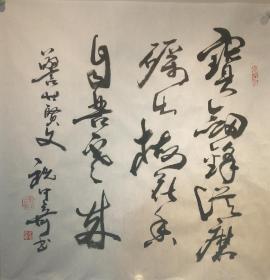 寶劍鋒從磨
礪出梅花香
自苦寒來
警世賢文